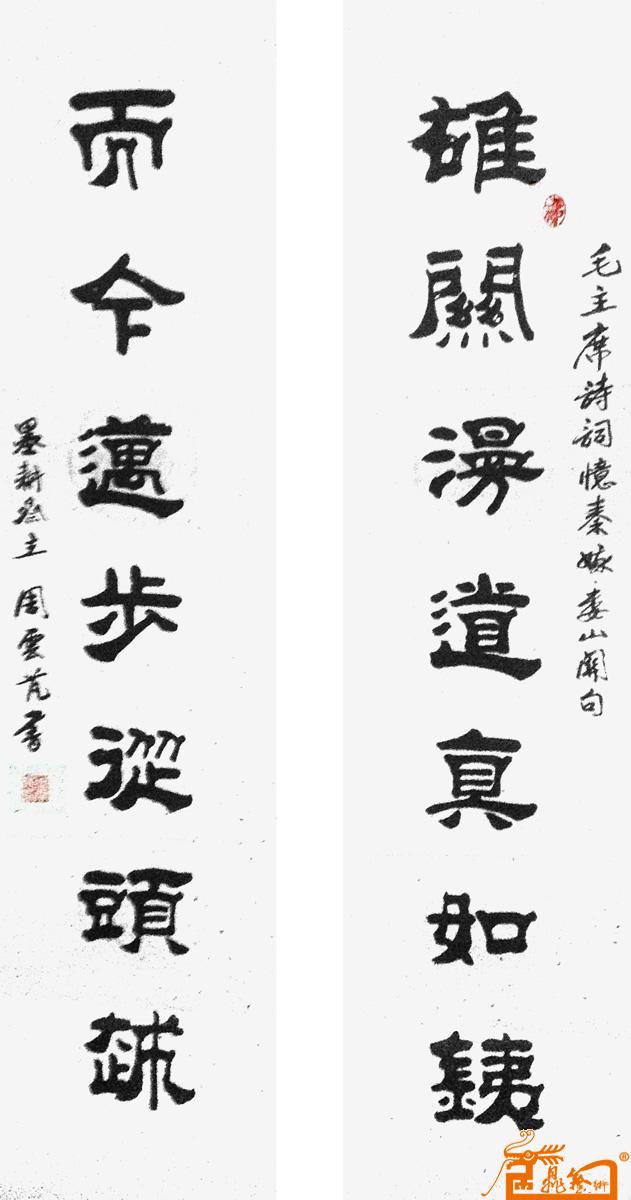 毛主席詩詞憶秦娥·婁山關句
雄關漫道真如銕
而今邁步從頭越
墨耕齋主 周雲芃書
®